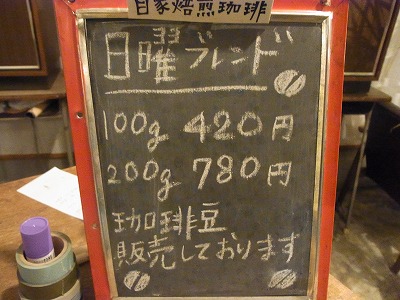 自家焙煎珈琲
日曜ブレンド
100g 420円
200g 780円
珈琲豆
販売しております